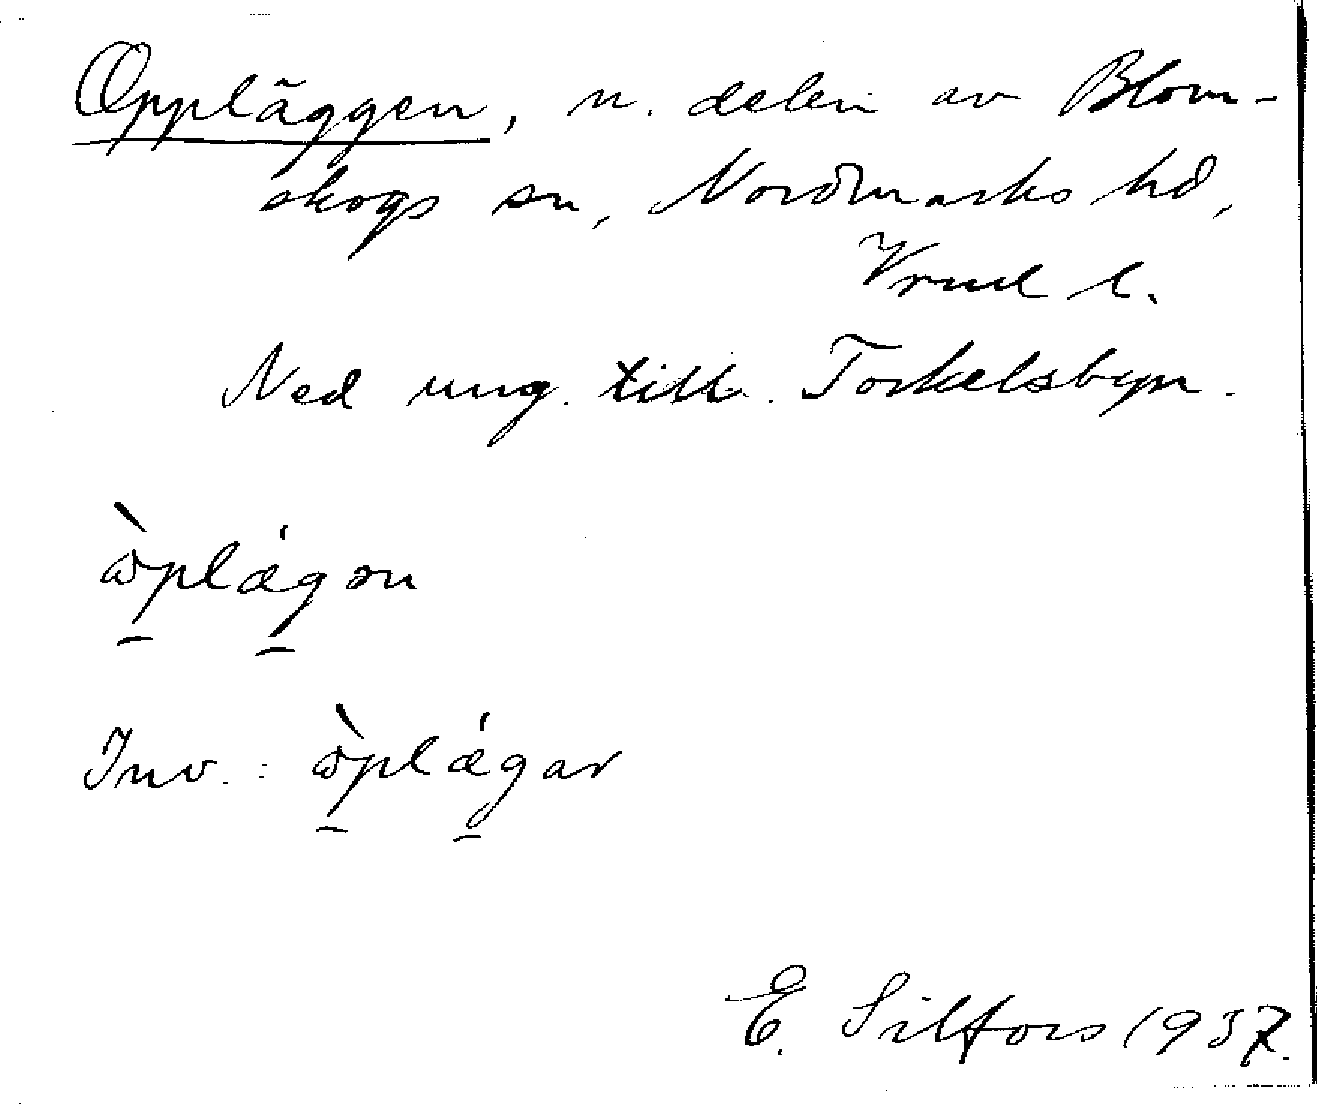 Oppläggen, n. delen av Blom-
skogs sn, Nordmarks hd,
Vrml l.
Ned ung. till. Torkelsbyn.
ὼplǽgən
Inv. : ὼplǽgar
E. Silfors 1937.